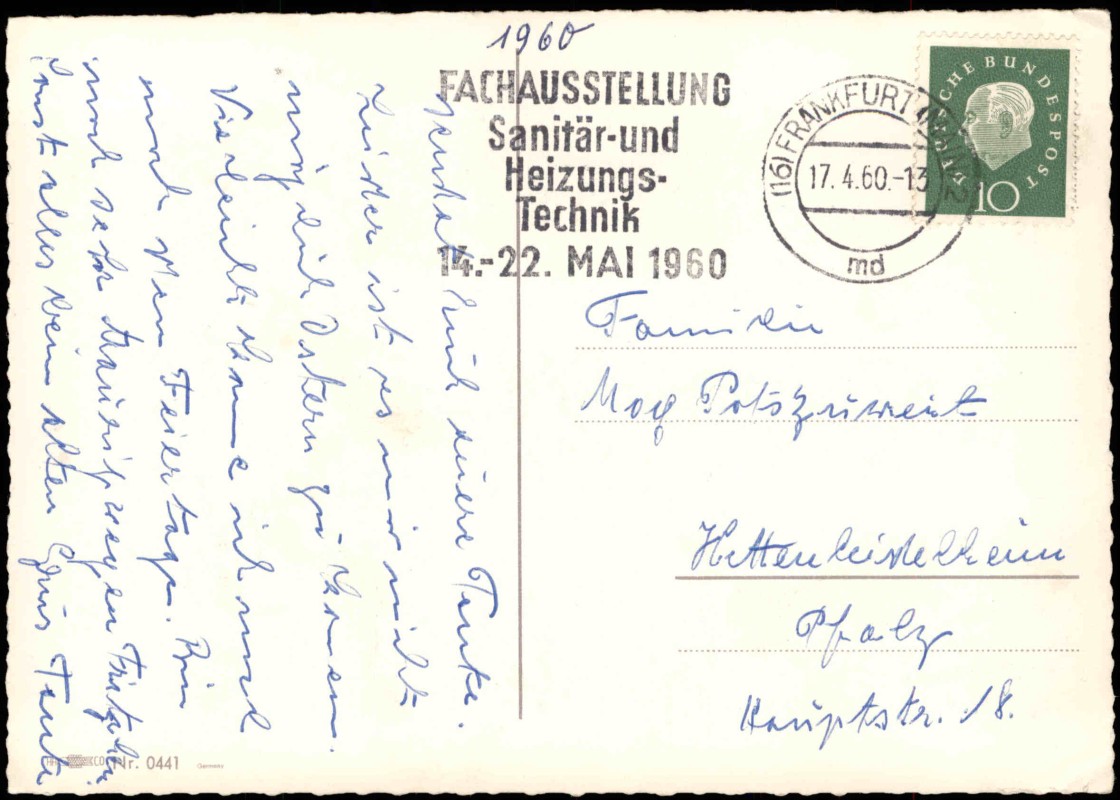 1960
FACHAUSSTELLUNG
Sanitär-und
Heizungs-
Technik
14.-22. MAI 1960
(16) FRANKFURT (MAIN) 2
17.4.60.-13
md
DEUTSCHE BUNDESPOST
10
Familie
Hettenleidelheim
Pfalz
Hauptstr. 18.
sendet Euch eure Tante.
Leider ist es mir nicht
möglich Ostern zu kommen.
Vielleicht komme ich rund
nach den Feiertage. Bin
noch sehr
Sonst alles beim alten Gruß Tante
Nr. 0441
Germany